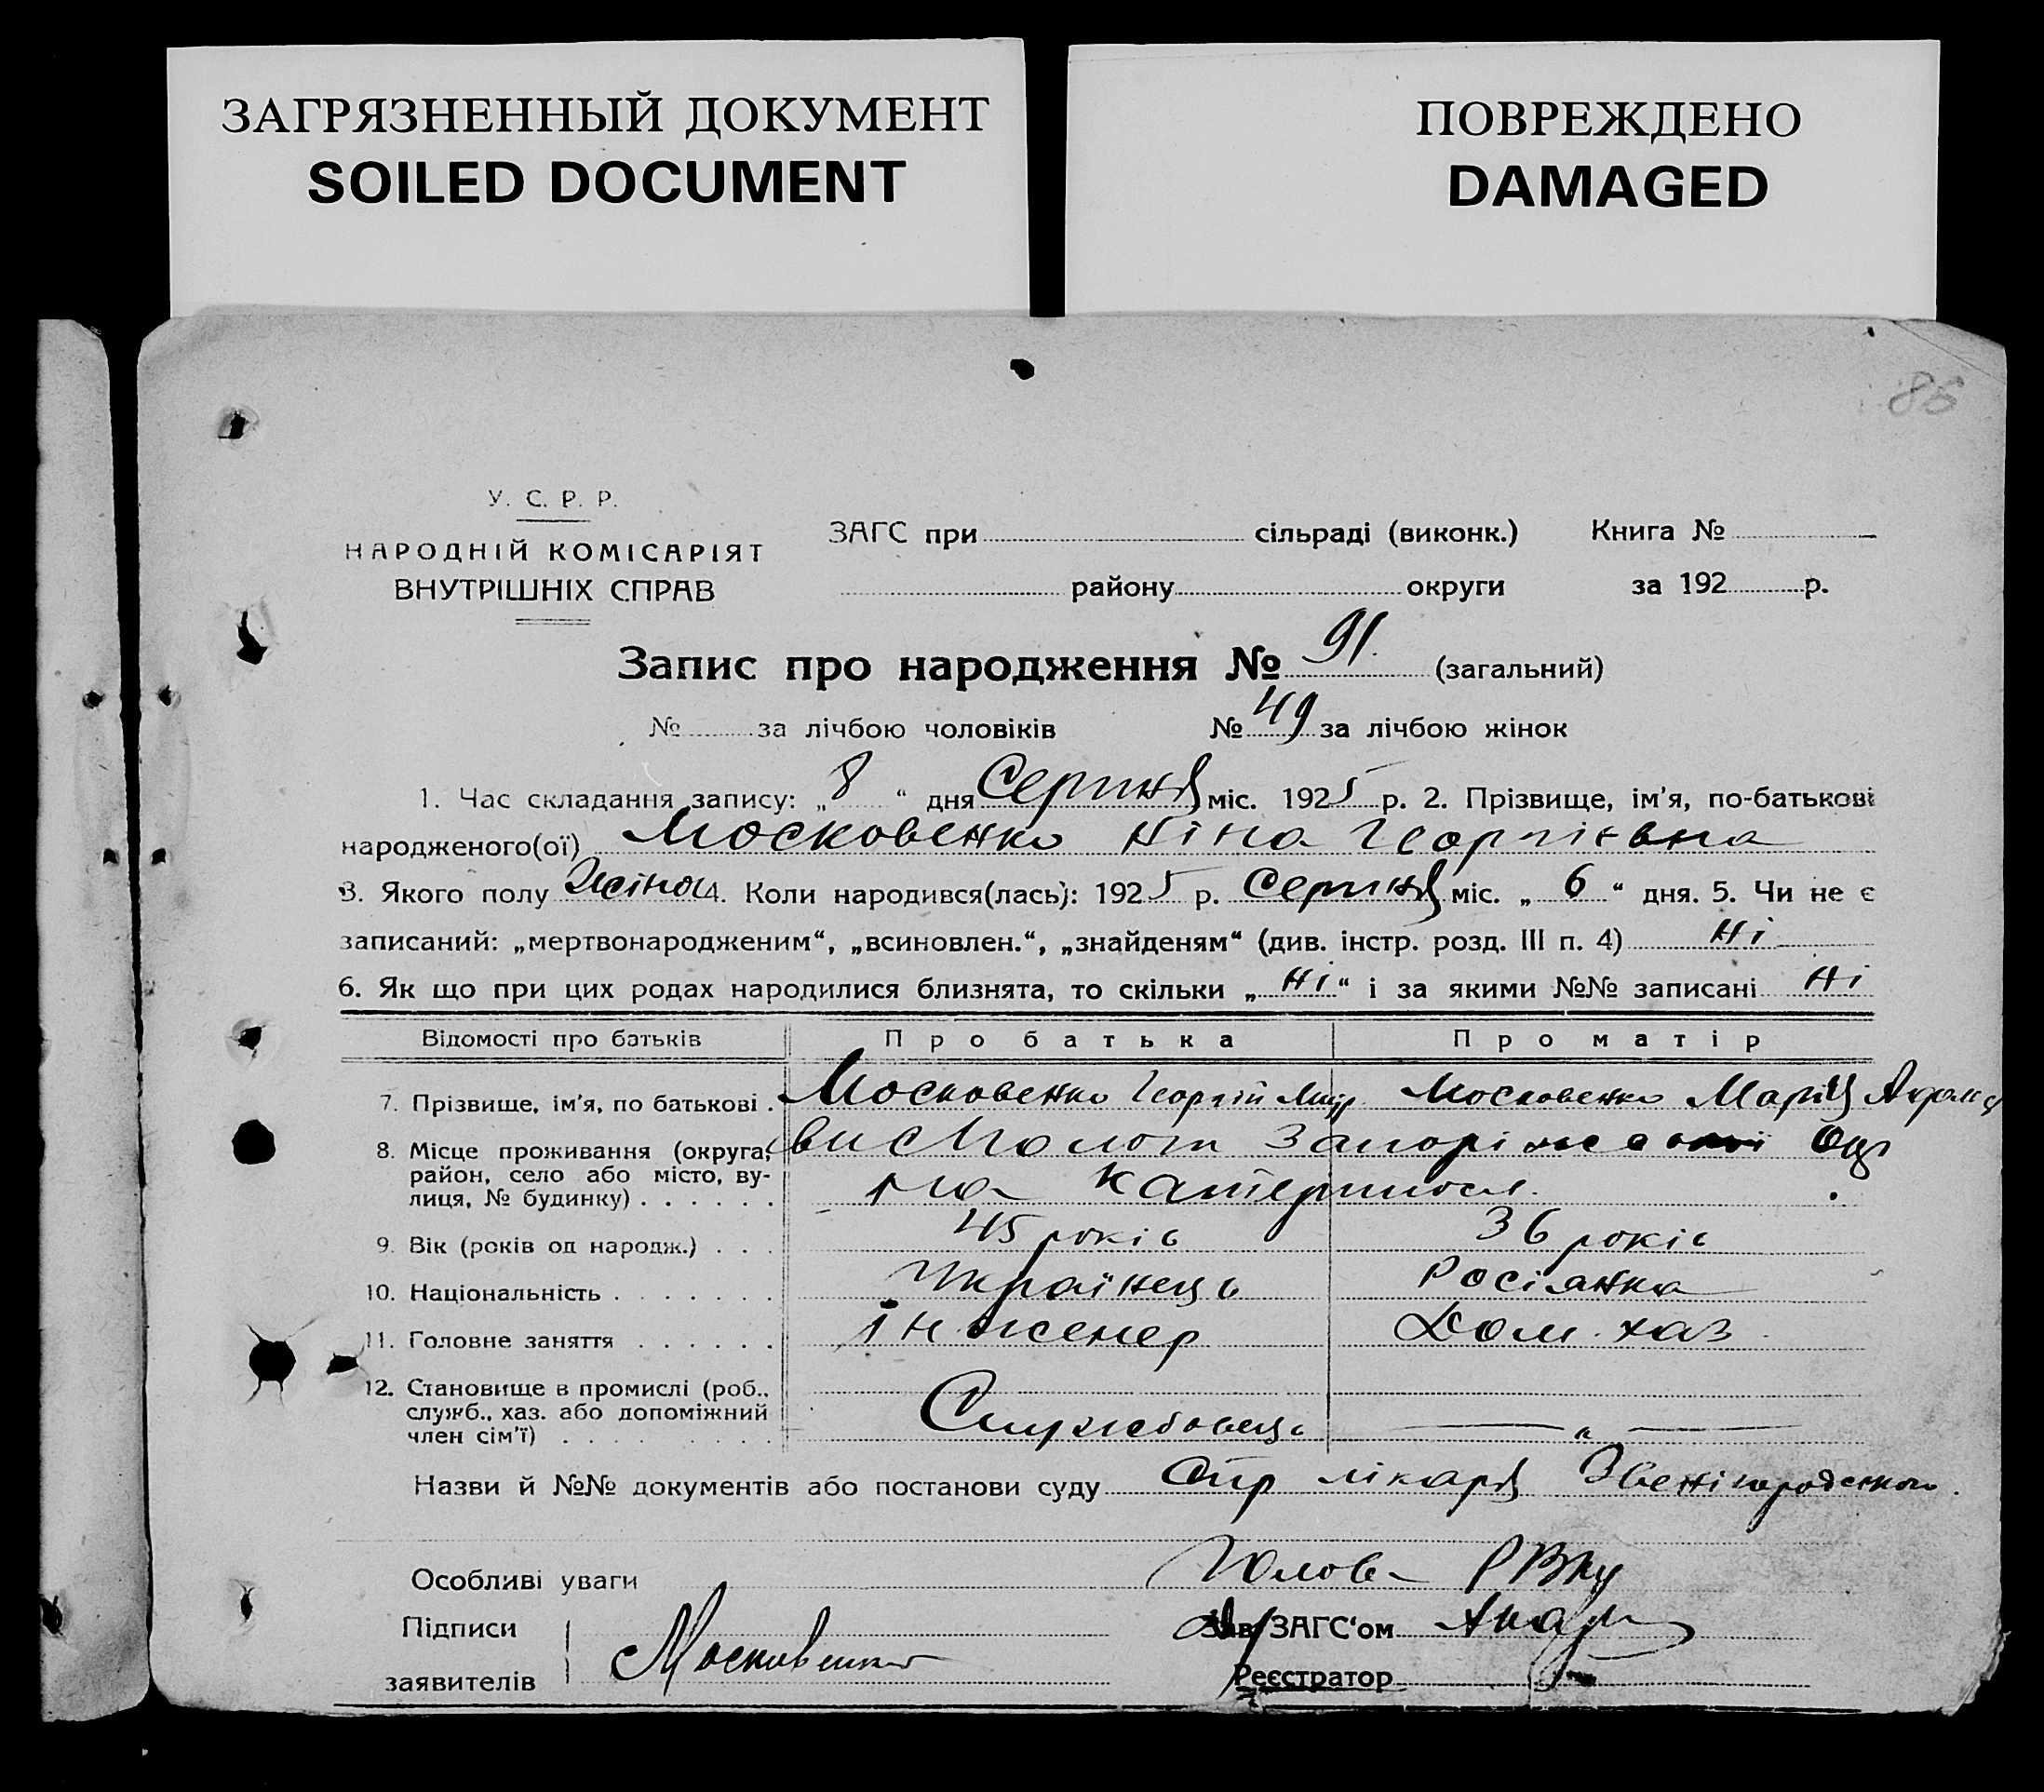 ЗАГРЯЗНЕННЫЙ ДОКУМЕНТ
SOILED DOCUMENT
ПОВРЕЖДЕНО
DAMAGED
86
У. С. Р. Р.
НАРОДНІЙ КОМІСАРІЯТ
ВНУТРІШНІХ СПРАВ
ЗАГС при сільраді (виконк.) Книга №
району округи за 192 р.
Запис про народження № 91. (загальний)
№ за лічбою чоловіків № 49 за лічбою жінок
1. Час складання запису: „8“ дня Серпня міс. 1925 р. 2. Прізвище, ім'я, по-батькові
народженого(ої) Московенко Ніна Георгієвна
3. Якого полу Жіноч 4. Коли народився(лась): 1925 р. Серпня міс. „6“ дня. 5. Чи не є
записаний: „мертвонародженим“, „всиновлен.“, „знайденям“ (див. інстр. розд. III п. 4) Ні
6. Як що при цих родах народилися близнята, то скільки „Ні“ і за якими №№ записані Ні
Відомості про батьків Про батька Про матір
7. Прізвище, ім'я, по батькові . Московенко Георгій Московенко Марія
8. Місце проживання (округа,
район, село або місто, ву-
лиця, № будинку) . . . . . .
9. Вік (років од народж.) . . . 45 років 36 років
10. Національність . . . . . . . Українець Росіянка
11. Головне заняття . . . . . . інженер Дом. хаз.
12. Становище в промислі (роб.,
служб., хаз. або допоміжний
член сім'ї) . . . . . . . . . Службовець — „ —
Назви й №№ документів або постанови суду лікаря Звенігородського.
Особливі уваги Голова РВКу
Підписи Зав. ЗАГС'ом
заявителів Московенко Реєстратор